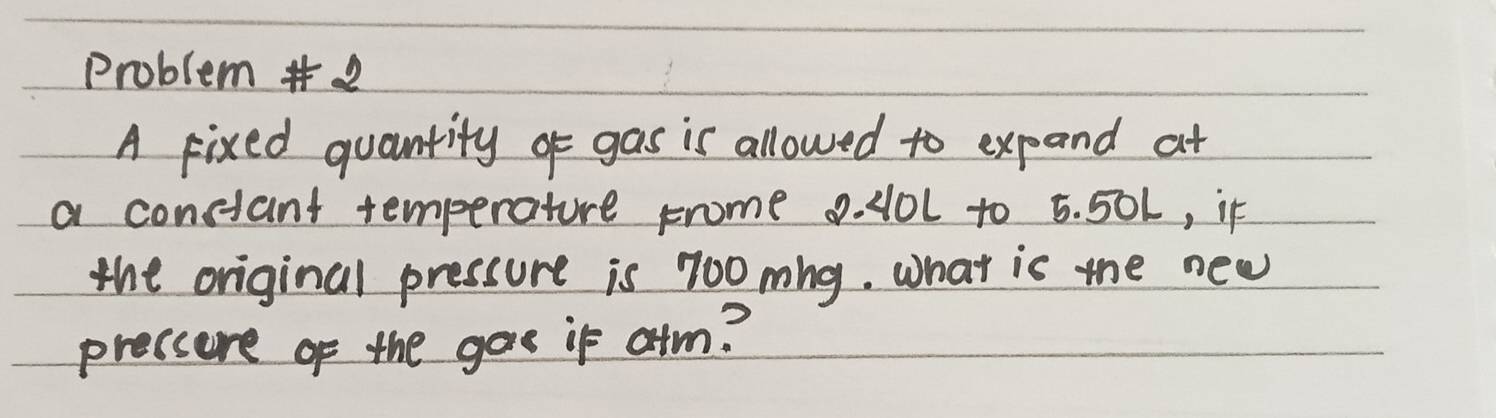 Problem #2
A fixed quantity of gas is allowed to expand at
a constant temperature frome 2.40L to 5.50L, if
the original pressure is 700 mhg. What is the new
pressure of the gas if atm?